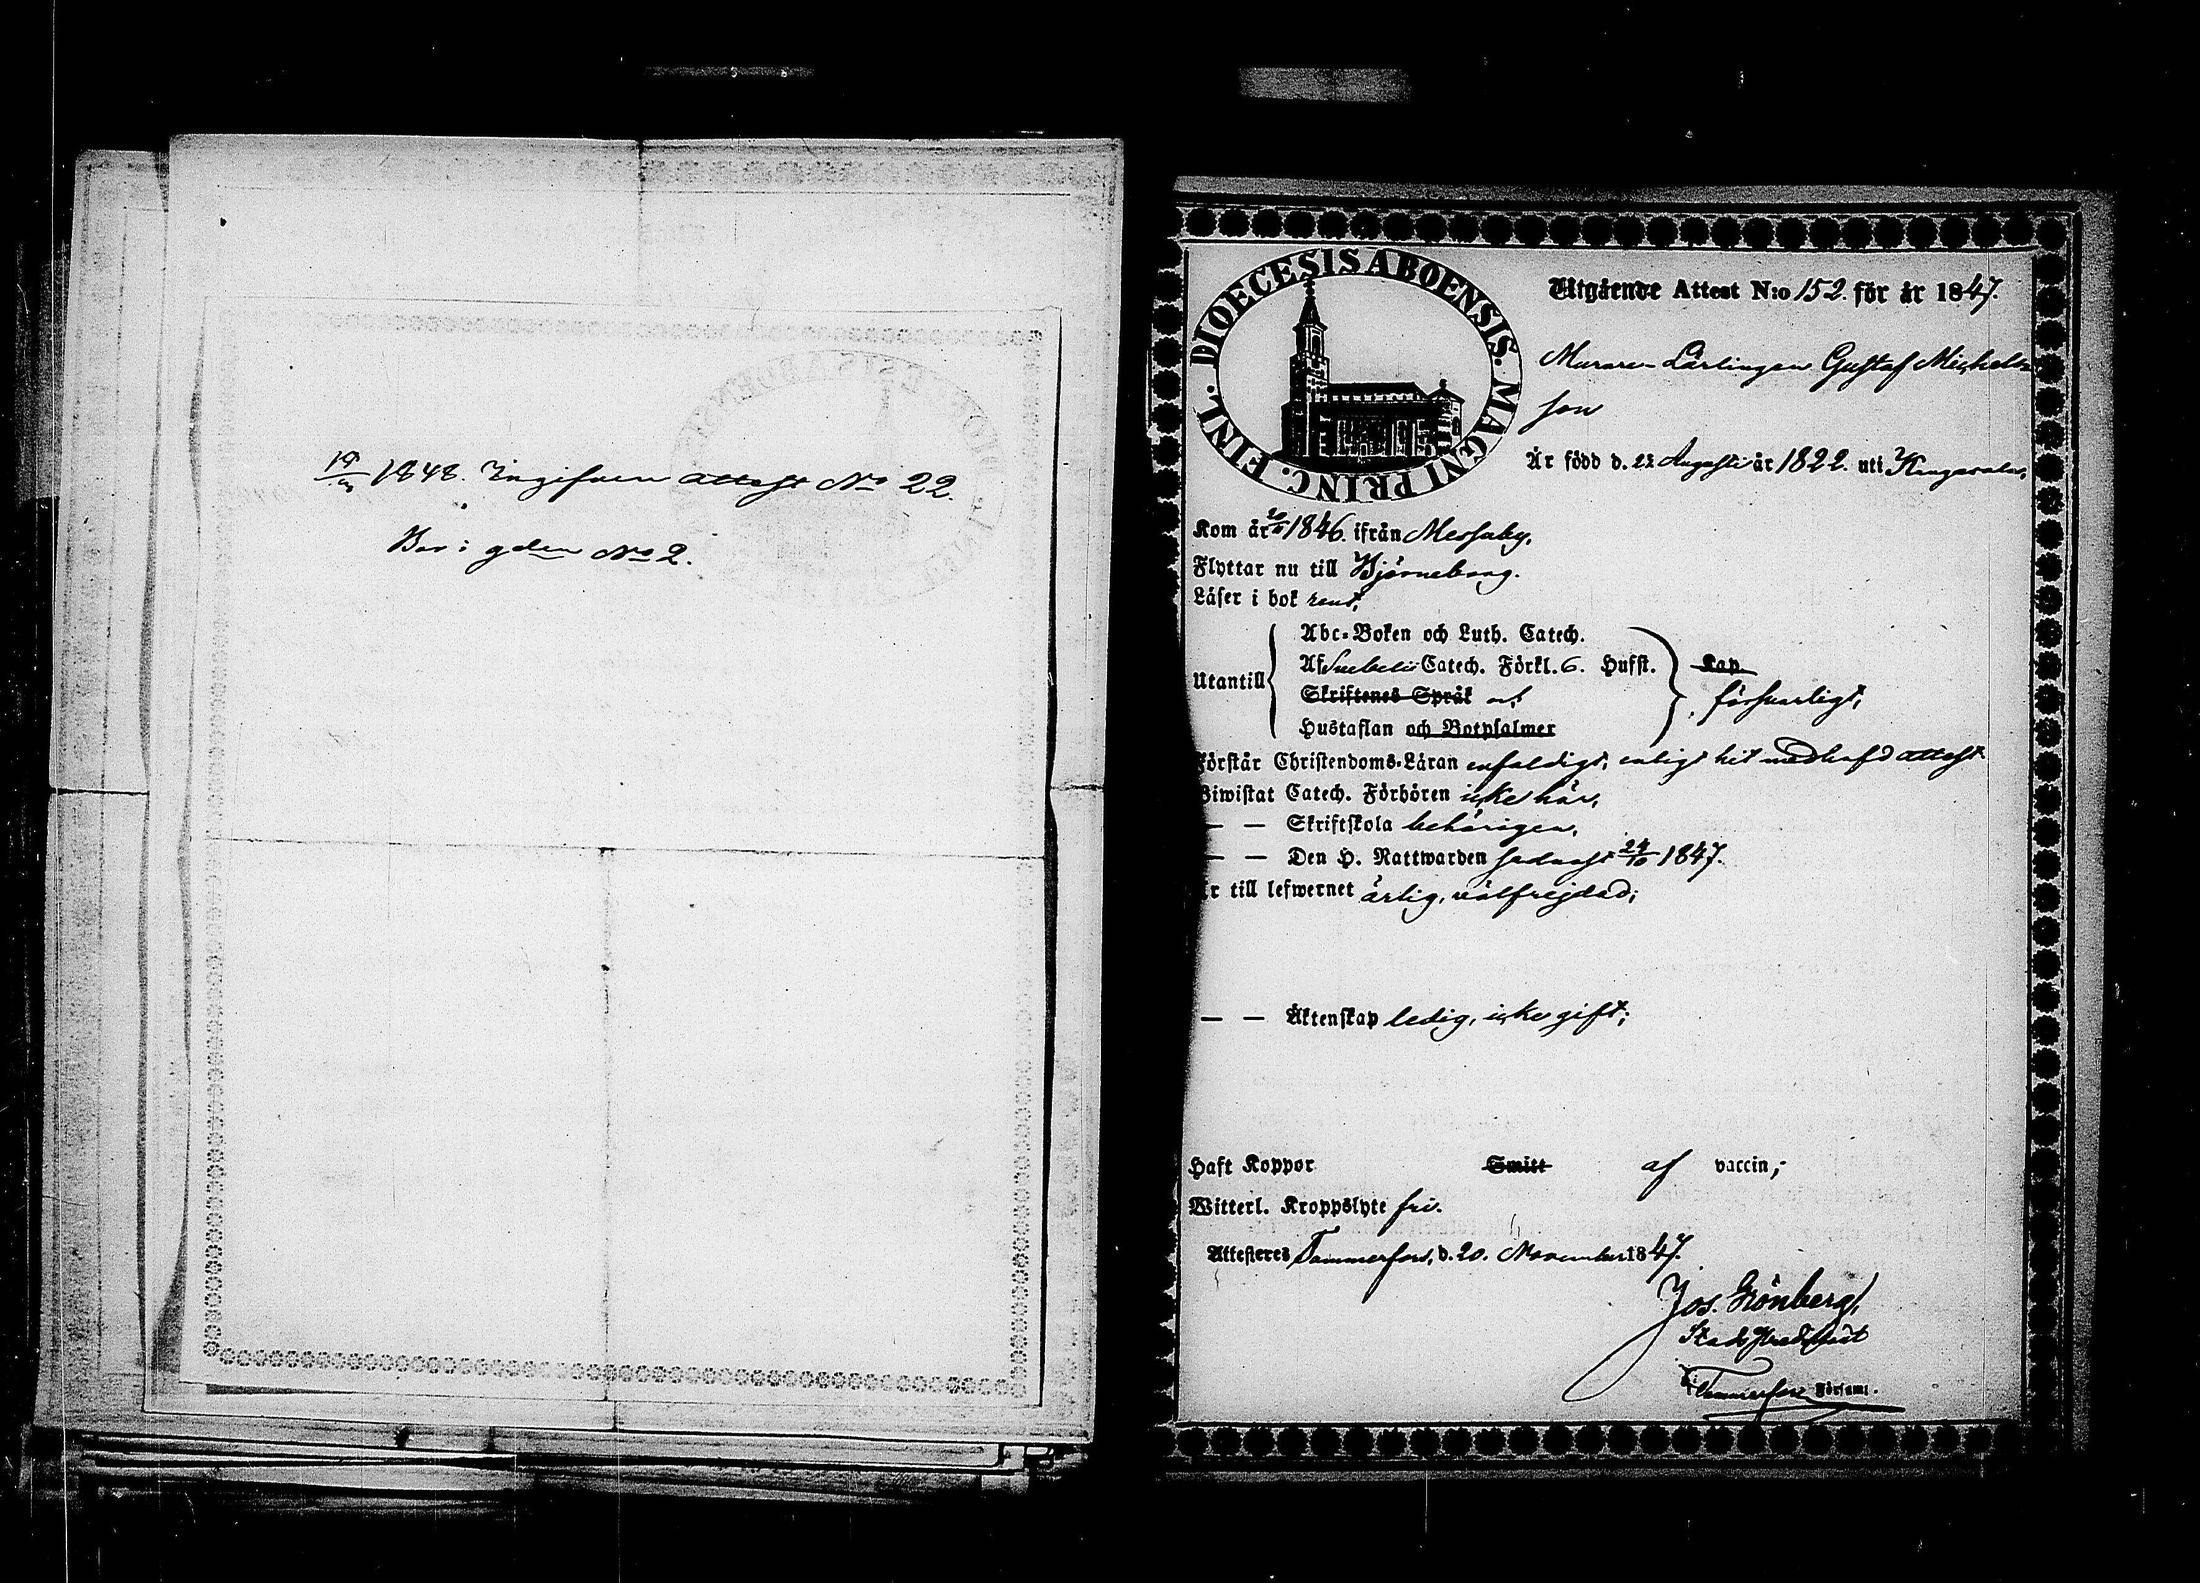 1848. Ingifven attest No 22.
Bor i gden No 2.
DIOECESIS ABOENSIS. MAGNI PRINC. FINL.
Utgående Attest N:o 152. för år 1847.
Murare-Lärlingen Gustaf Michels-
son
Är född d. 22 Augusti år 1822. uti Kangasala.
Kom år 1846. ifrån Messuby.
Flyttar nu till Björneborg.
Läser i bok rent,
Utantill
Abc-Boken och Luth. Catech.
Af Svebelii Catech. Förkl. 6. Hufst.
Skriftenes Språk och
Hustaflan och Botpsalmer
Kap.
försvarligt;
Förstår Christendoms-Läran enfaldigt, enligt hit medhafd attest
Biwistat Catech. Förhören icke här,
— — Skriftskola behörigen,
— — Den H. Nattwarden sednast 24/10 1847.
Är till lefwernet ärlig, välfrejdad;
— — Äktenskap ledig, icke gift;
Haft Koppor Smitt af vaccin;
Witterl. Kroppslyte fri.
Attesteres Tammerfors, d. 20. November 1847.
Jos. Grönberg,
Tammerfors Församl.